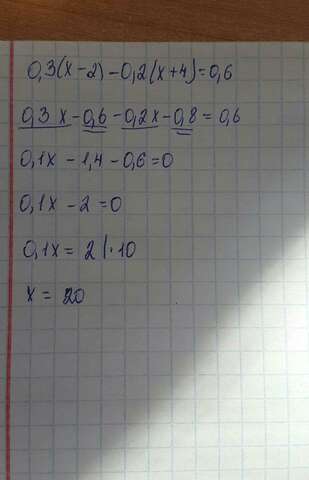 0,3(x-2)-0,2(x+4)=0,6
0,3x-0,6-0,2x-0,8=0,6
0,1x-1,4-0,6=0
0,1x-2=0
0,1x=2 |·10
x=20